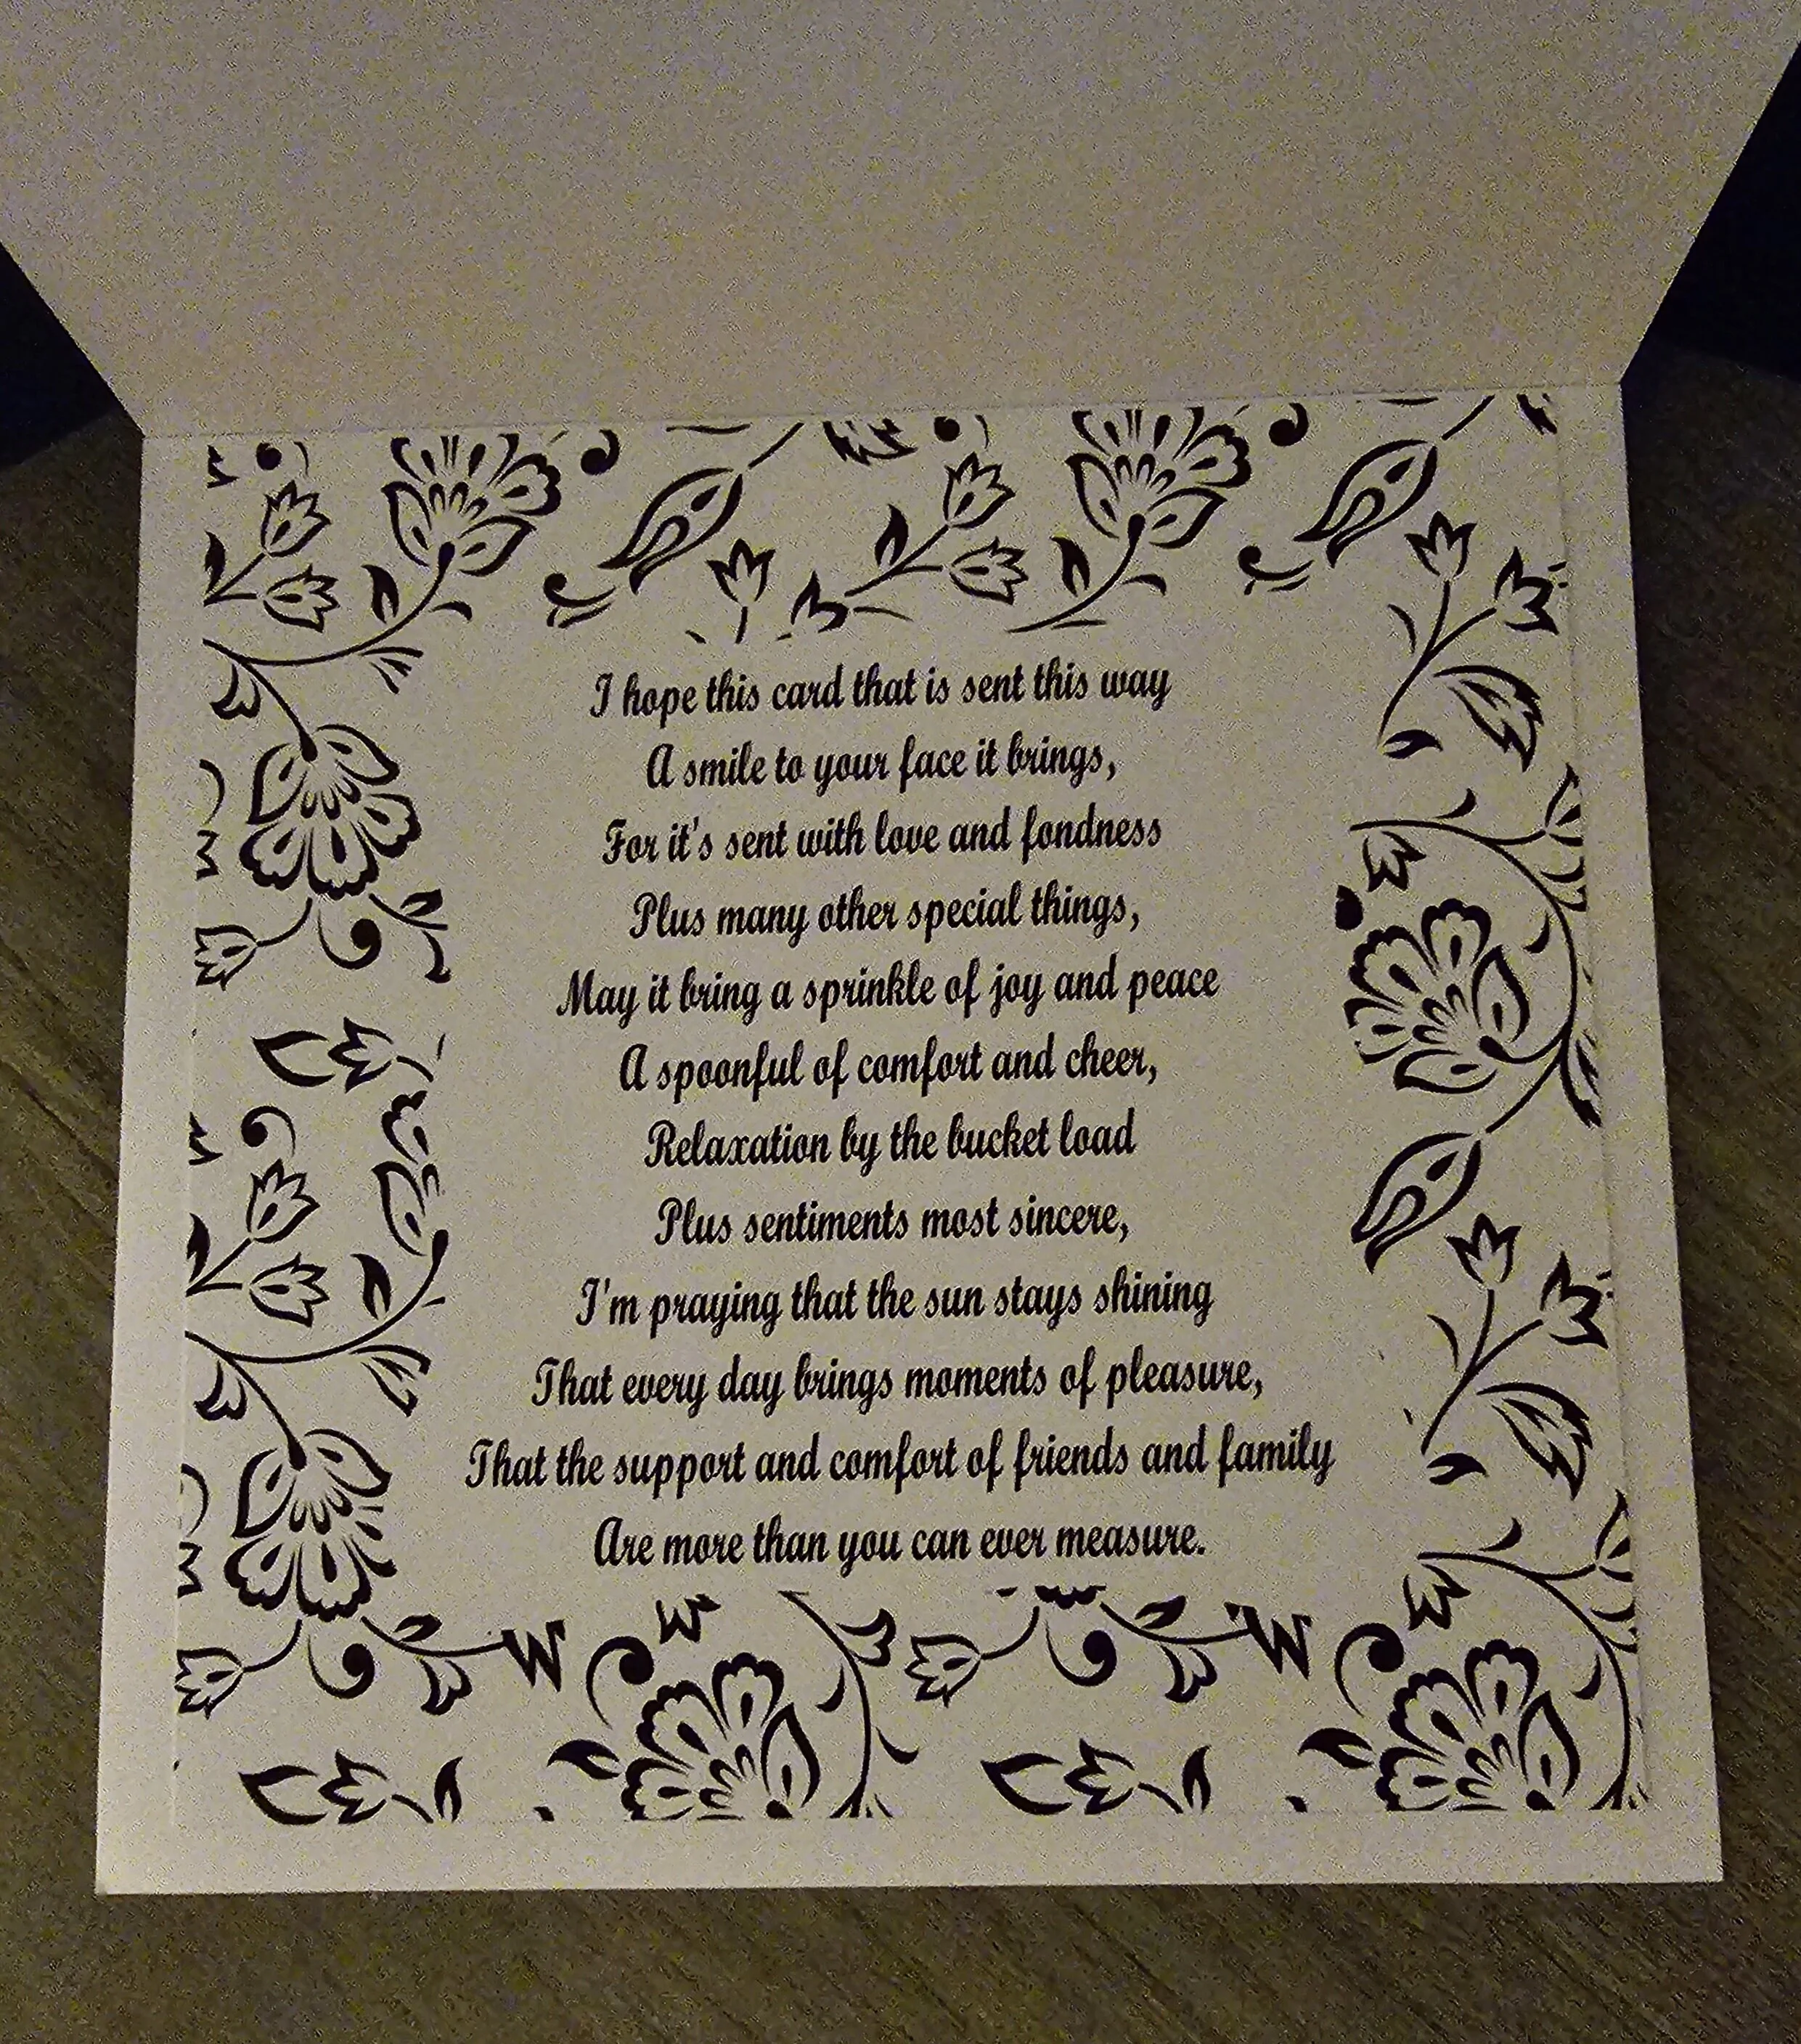 I hope this card that is sent this way
A smile to your face it brings,
For it's sent with love and fondness
Plus many other special things,
May it bring a sprinkle of joy and peace
A spoonful of comfort and cheer,
Relaxation by the bucket load
Plus sentiments most sincere,
I'm praying that the sun stays shining
That every day brings moments of pleasure,
That the support and comfort of friends and family
Are more than you can ever measure.